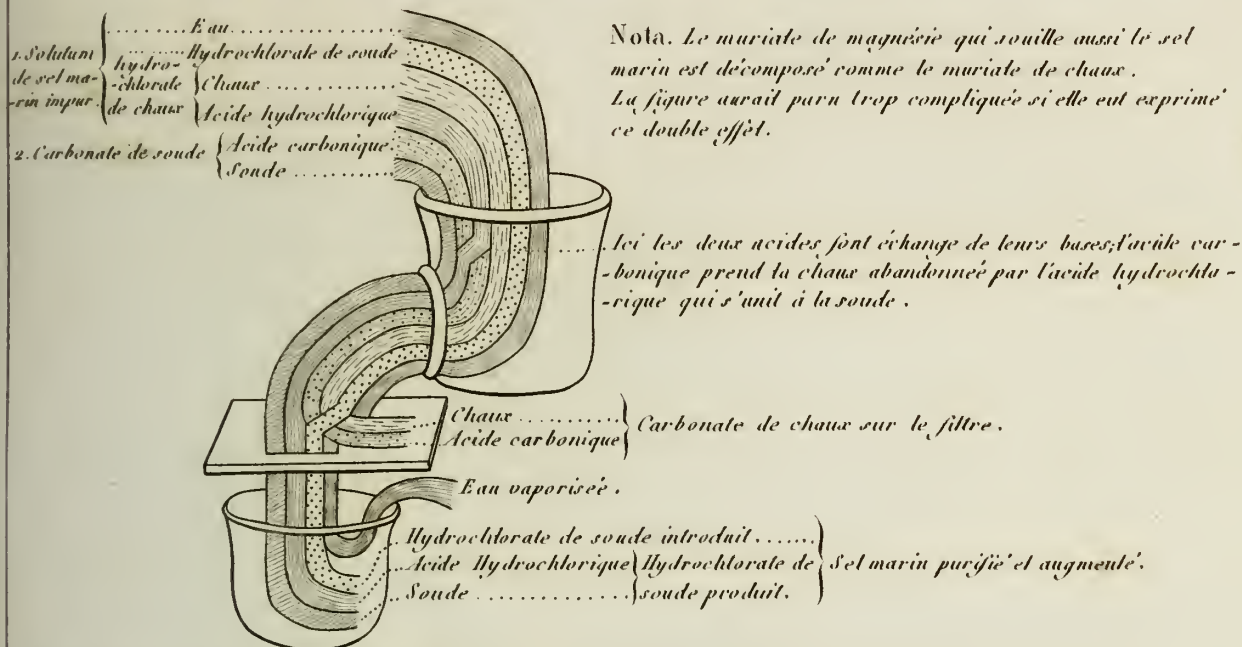 1. Solutum de sel ma-rin impur.
Eau
Hydrochlorate de soude
hydro-chlorate de chaux
Chaux
Acide hydrochlorique
2. Carbonate de soude
Acide carbonique
Soude
Nota. Le muriate de magnésie qui souille aussi le sel
marin est décomposé comme le muriate de chaux.
La figure aurait paru trop compliquée si elle eut exprimé
ce double effet.
Ici les deux acides font échange de leurs bases; l'acide car-
-bonique prend la chaux abandonneé par l'acide hydrochlo-
-rique qui s'unit à la soude.
Chaux
Acide carbonique
Carbonate de chaux sur le filtre.
Eau vaporiseé.
Hydrochlorate de soude introduit
Acide Hydrochlorique
Soude
Hydrochlorate de
soude produit.
Sel marin purifié et augmenté.